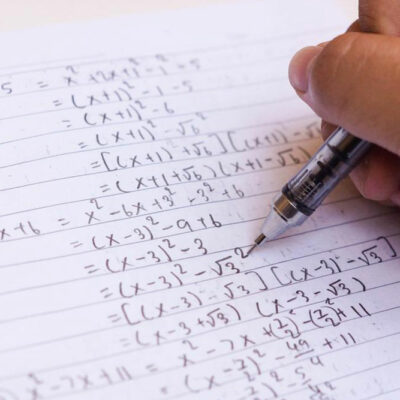 5 = x² + 2x + 1 - 1 - 5
= (x+1)² - 1 - 5
= (x+1)² - 6
= (x+1)² - √6²
= [(x+1) + √6] [(x+1) - √6
= (x+1+√6)(x+1-√6)
x + 6 = x² - 6x + 3² - 3² + 6
= (x-3)² - 9 + 6
= (x-3)² - 3
= (x-3)² - √3²
= [(x-3) - √3] [(x-3) - √3]
= (x-3+√3) (x-3-√3)
x² - 7x + 11 = x² - 7x + (7/2)² - (7/2)² + 11
= (x-7/2)² - 49/4 + 11
= (x-7/2)² - 5/4